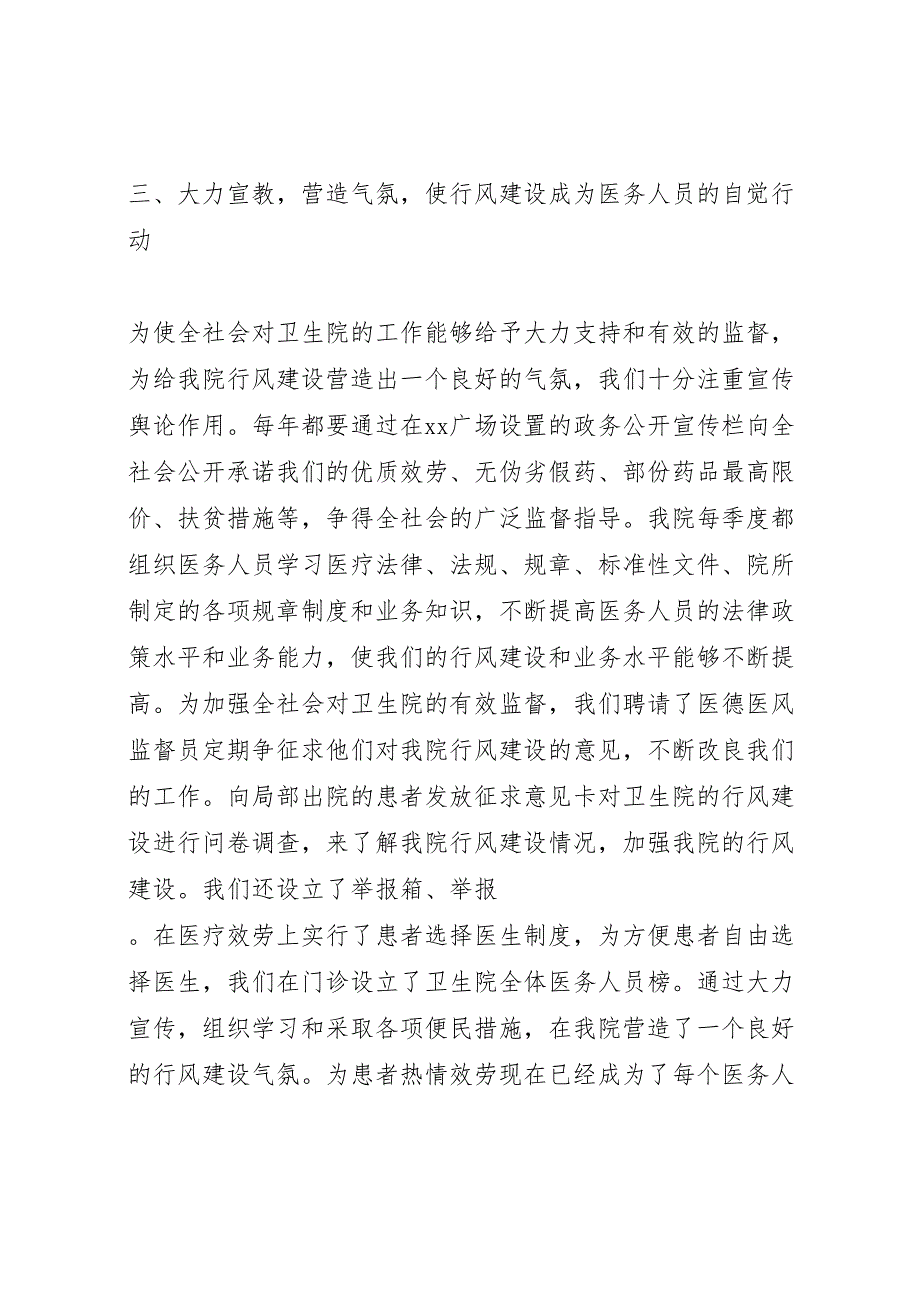 三、大力宣教，营造气氛，使行风建设成为医务人员的自觉行
动
为使全社会对卫生院的工作能够给予大力支持和有效的监督，
为给我院行风建设营造出一个良好的气氛，我们十分注重宣传
舆论作用。每年都要通过在xx广场设置的政务公开宣传栏向全
社会公开承诺我们的优质效劳、无伪劣假药、部份药品最高限
价、扶贫措施等，争得全社会的广泛监督指导。我院每季度都
组织医务人员学习医疗法律、法规、规章、标准性文件、院所
制定的各项规章制度和业务知识，不断提高医务人员的法律政
策水平和业务能力，使我们的行风建设和业务水平能够不断提
高。为加强全社会对卫生院的有效监督，我们聘请了医德医风
监督员定期争征求他们对我院行风建设的意见，不断改良我们
的工作。向局部出院的患者发放征求意见卡对卫生院的行风建
设进行问卷调查，来了解我院行风建设情况，加强我院的行风
建设。我们还设立了举报箱、举报
。在医疗效劳上实行了患者选择医生制度，为方便患者自由选
择医生，我们在门诊设立了卫生院全体医务人员榜。通过大力
宣传，组织学习和采取各项便民措施，在我院营造了一个良好
的行风建设气氛。为患者热情效劳现在已经成为了每个医务人